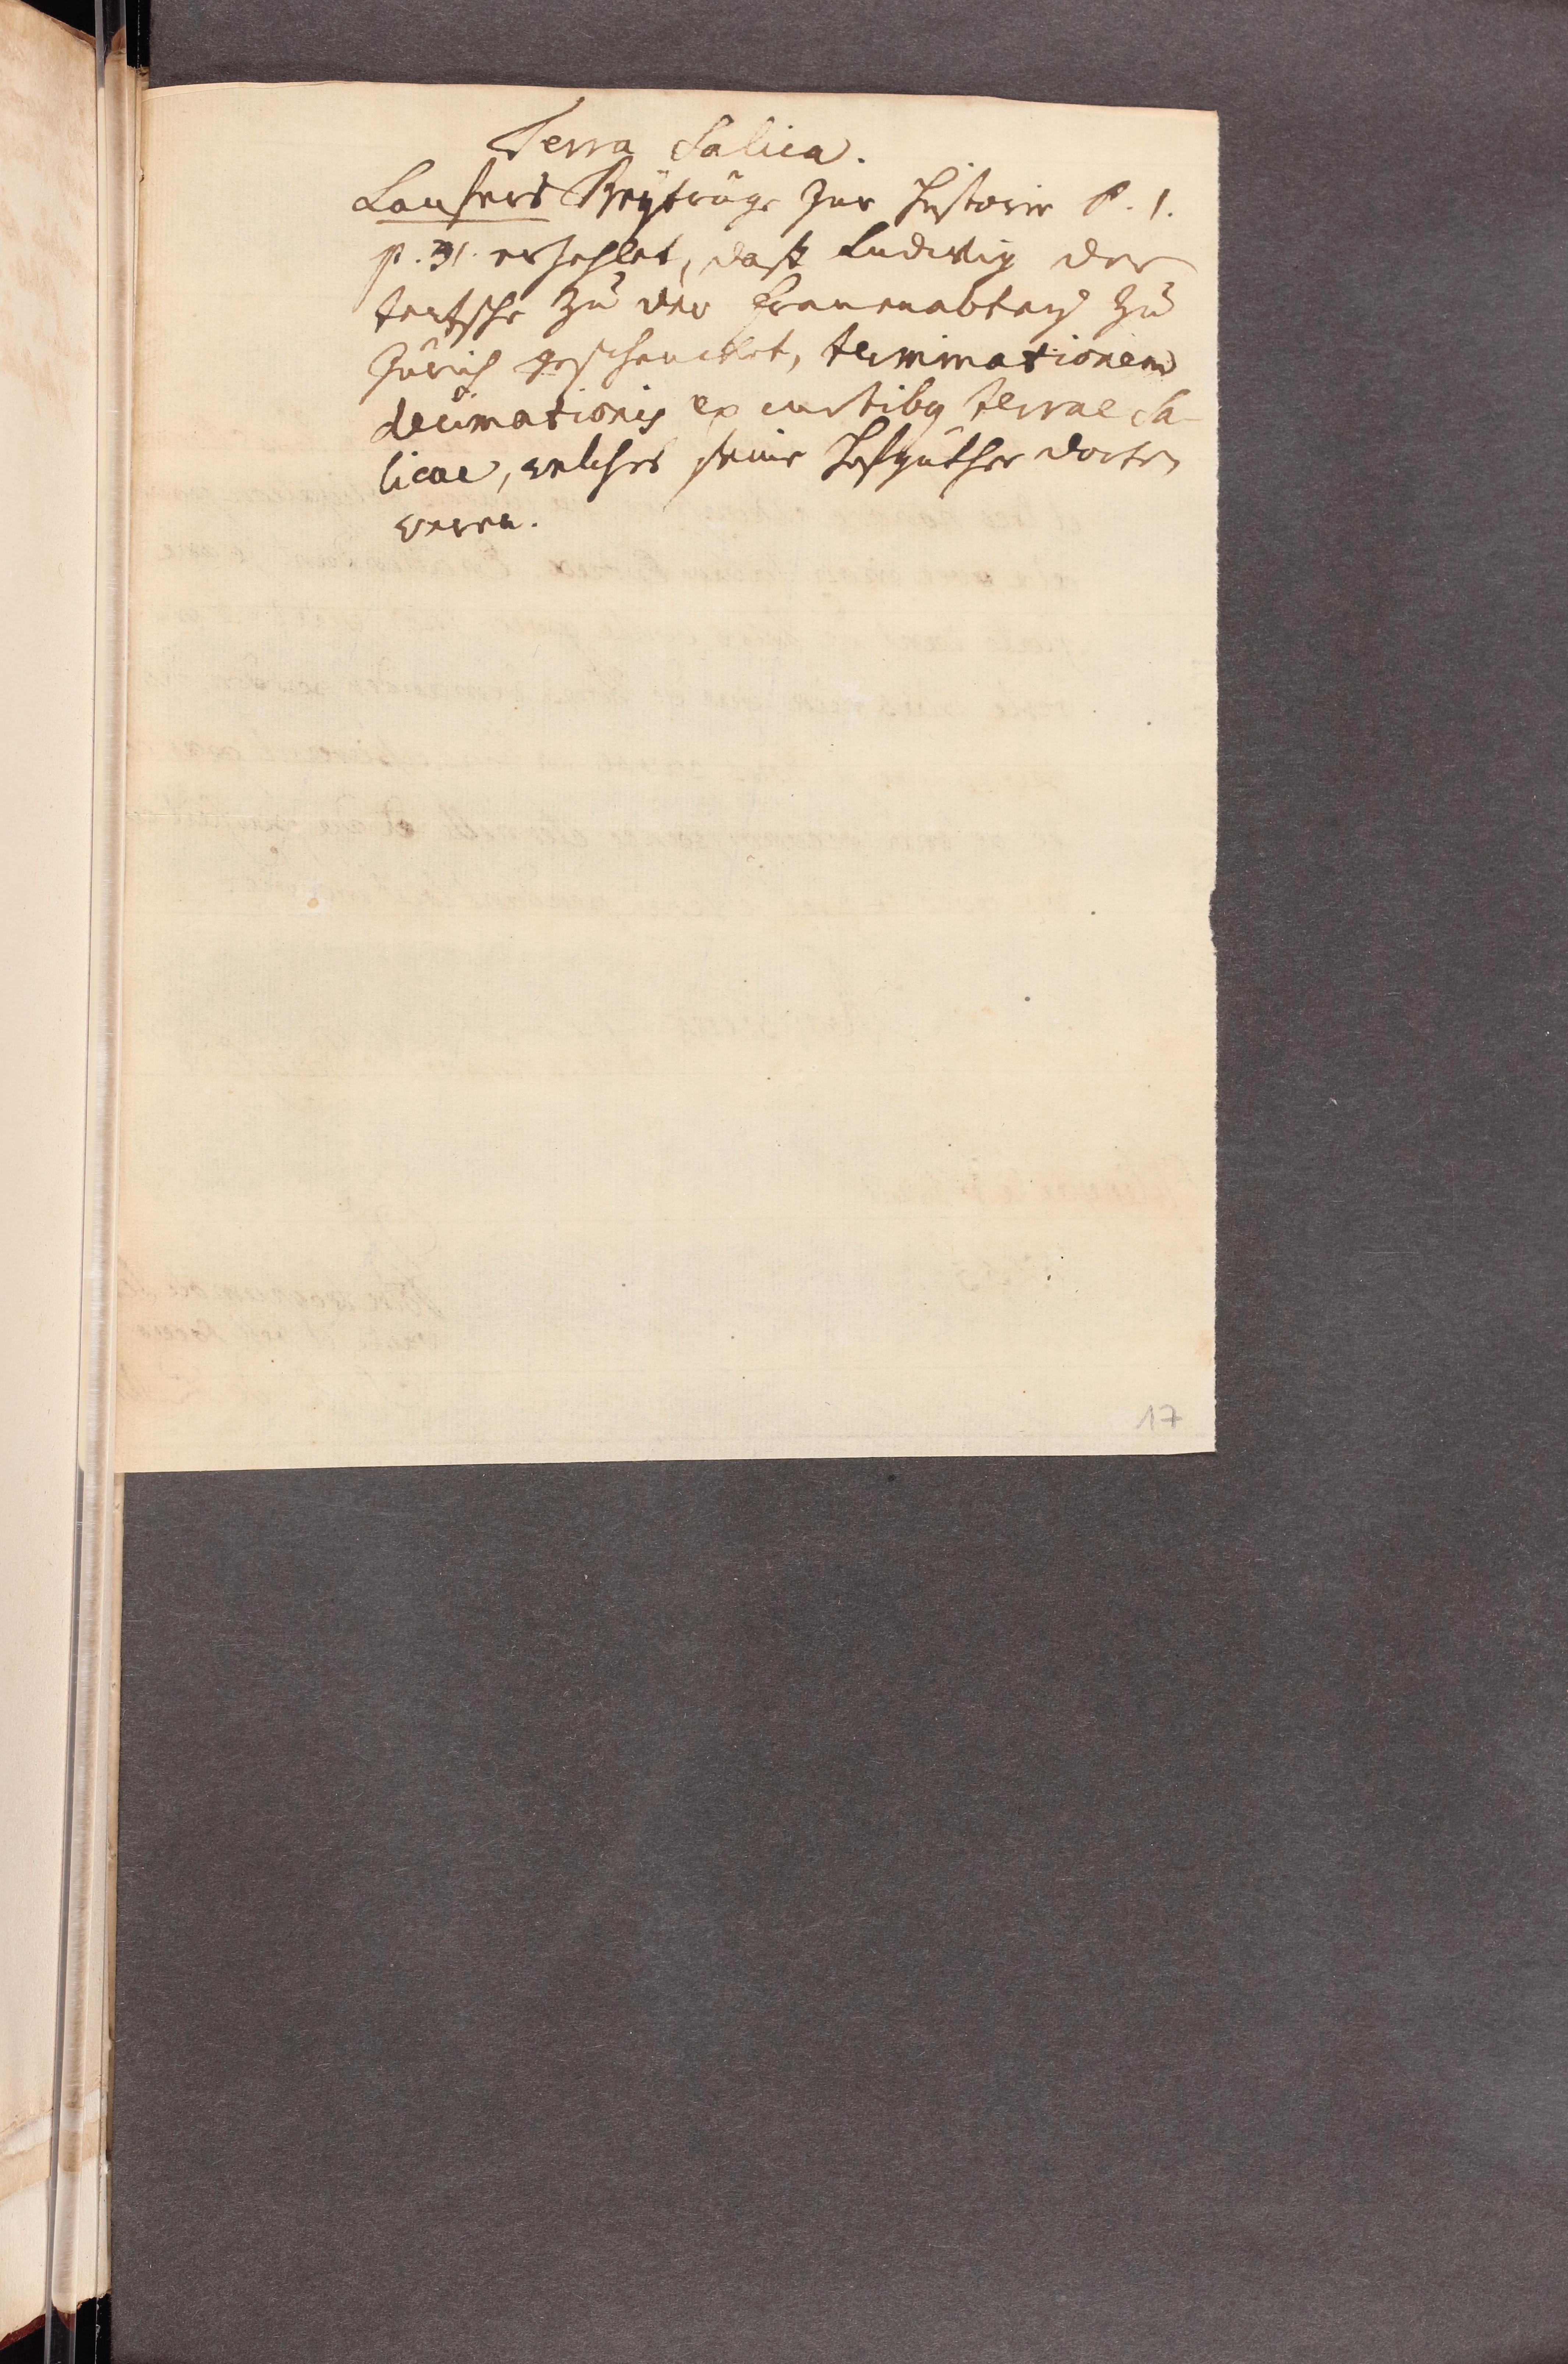 Terra Salica.
Laufers Beyträge zur Historie P. 1.
p. 31. erzehlet, daß Ludwig der
teutsche zu der Frauenabtey zu
Zürich geschencket, terminationem
decimationis ex curtibq terrae Sa-
licae, welches seine Hofgüther dorten
waren.
17